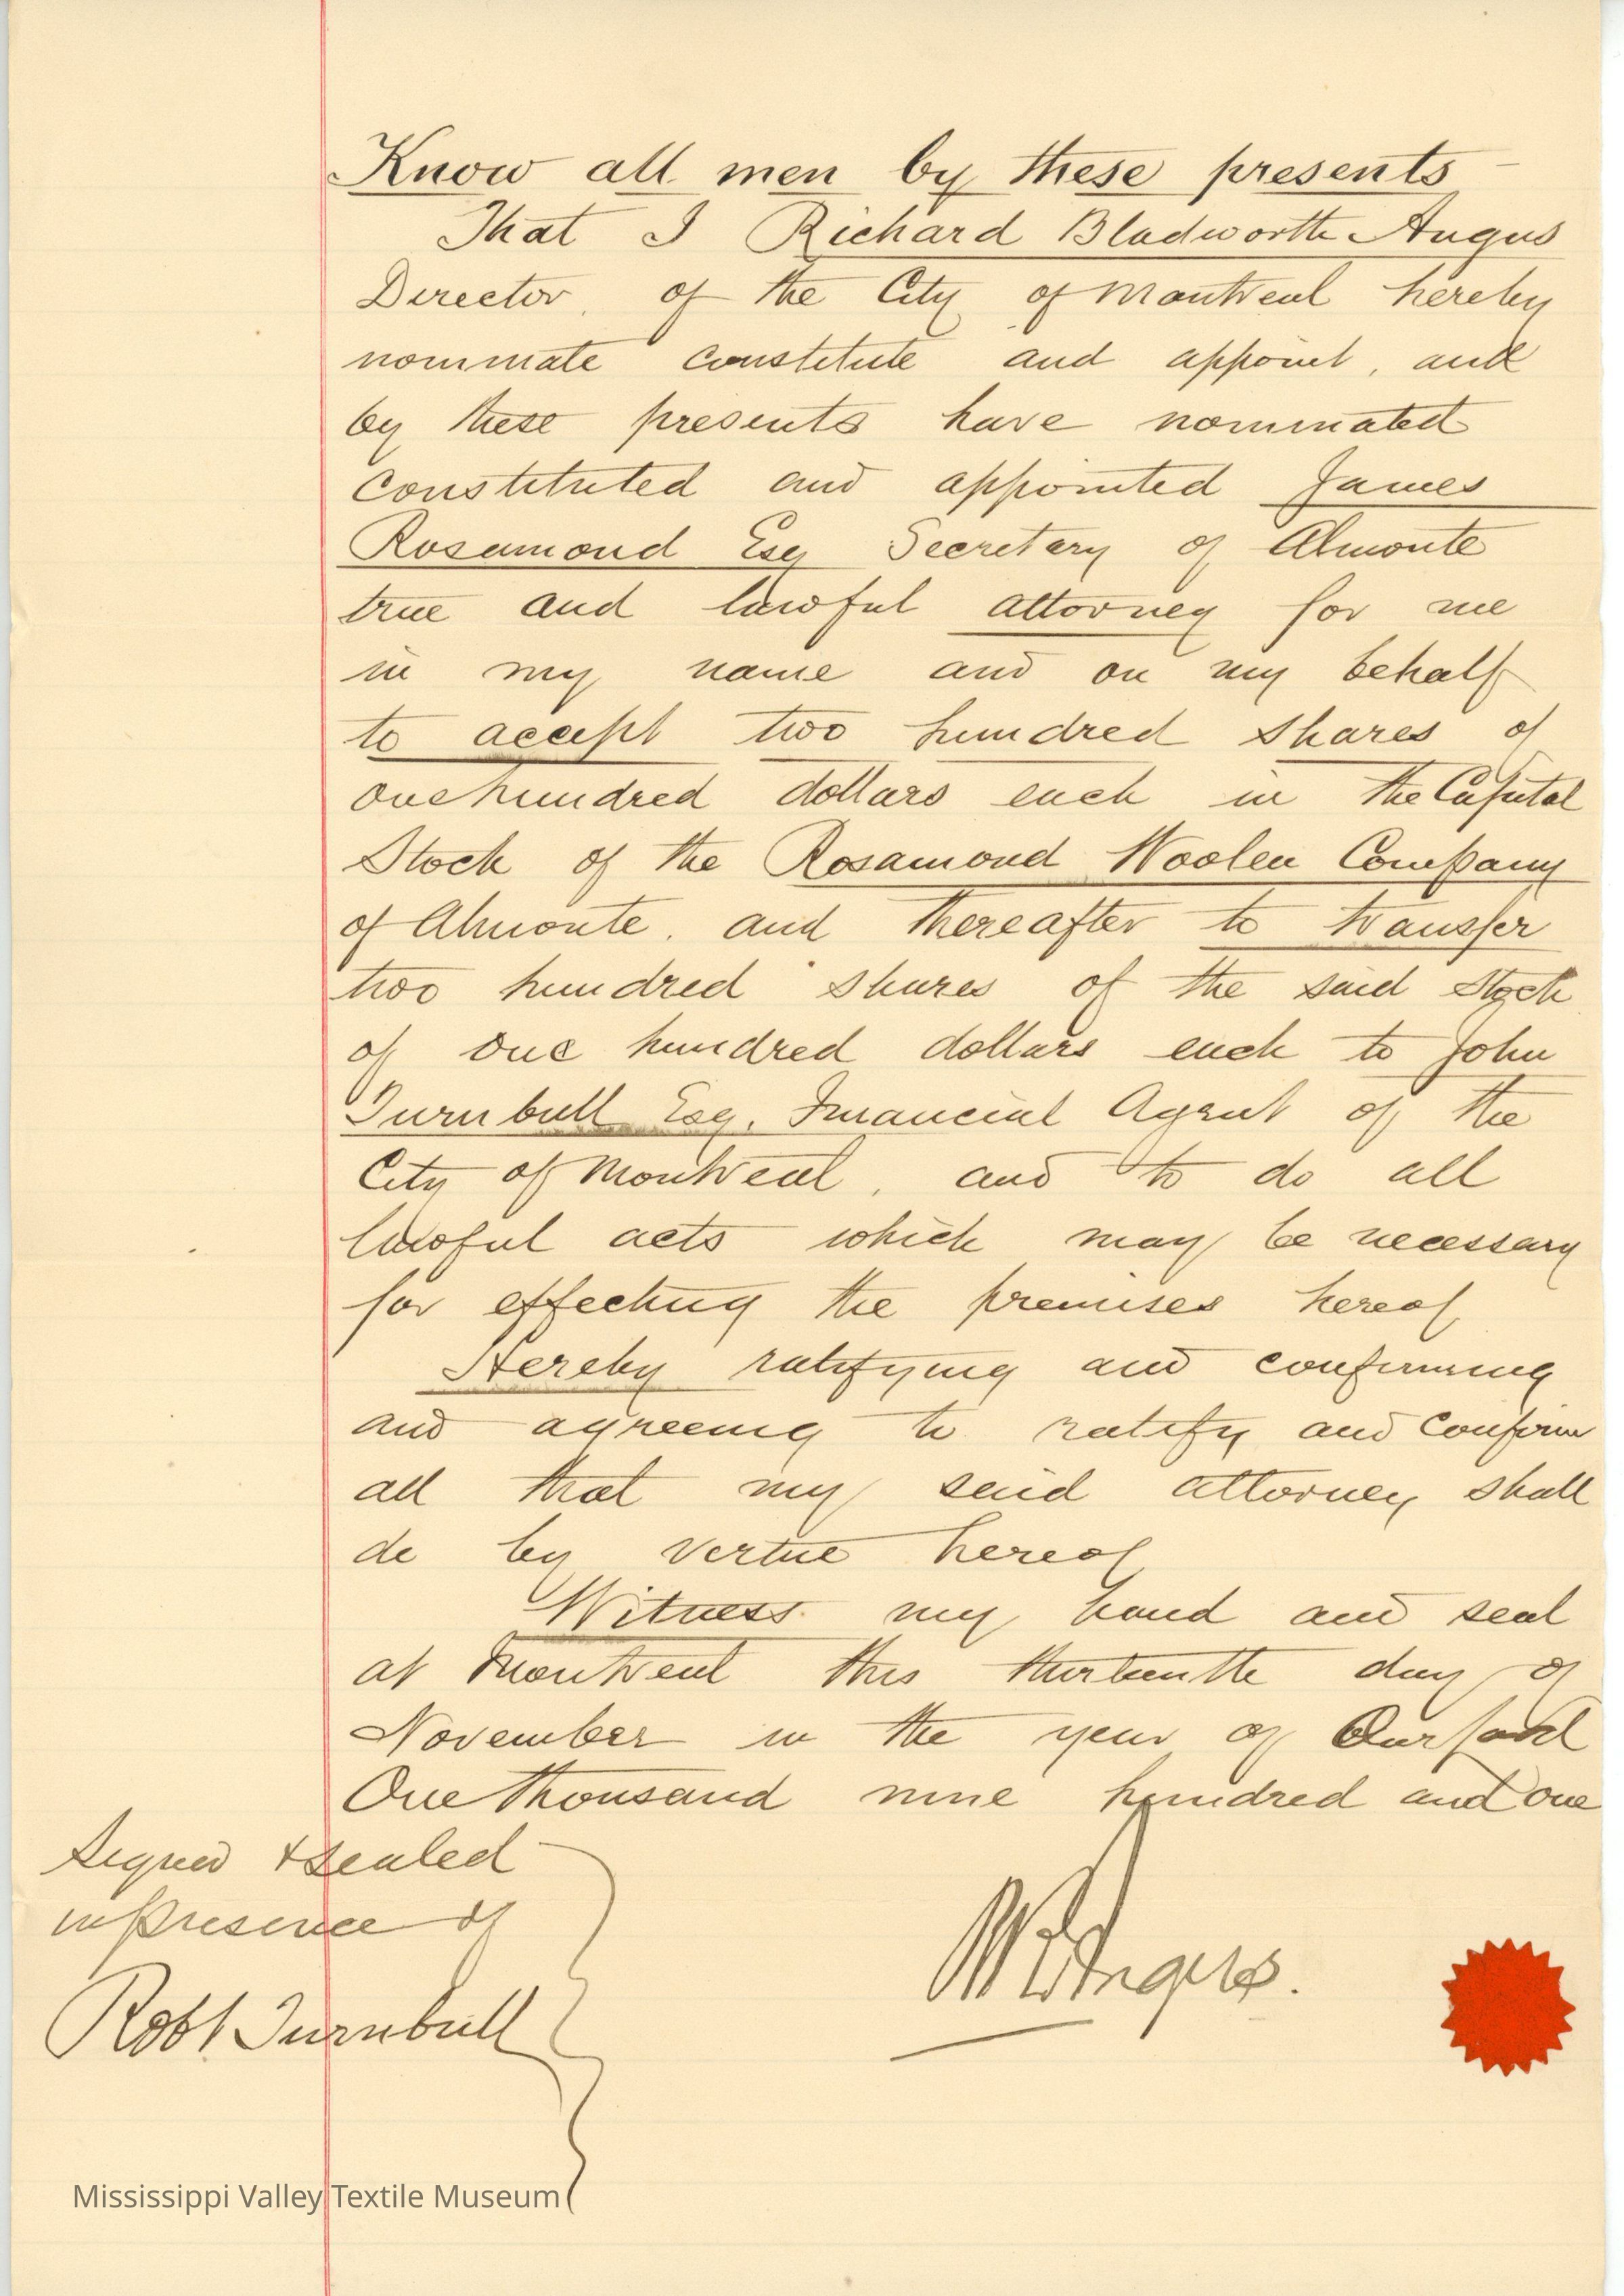 Know all men by these presents –
That I Richard Bladworth Angus
Director, of the City of Montreal hereby
nominate constitute and appoint, and
by these presents have nominated
constituted and appointed James
Rosamond Esq Secretary of Almonte
true and lawful attorney for me
in my name and on my behalf
to accept two hundred shares of
one hundred dollars each in the Capital
Stock of the Rosamond Woolen Company
of Almonte, and thereafter to transfer
two hundred shares of the said Stock
of one hundred dollars each to John
Turnbull Esq. Financial Agent of the
City of Montreal, and to do all
lawful acts which may be necessary
for effecting the premises hereof
Hereby ratifying and confirming
and agreeing to ratify and confirm
all that my said attorney shall
do by vertue hereof
Witness my hand and seal
at Montreal this thirteenth day of
November in the year of Our Lord
One thousand nine hundred and one
Signed & sealed
in presence of
Robt Turnbull
RB Angus.
Mississippi Valley Textile Museum